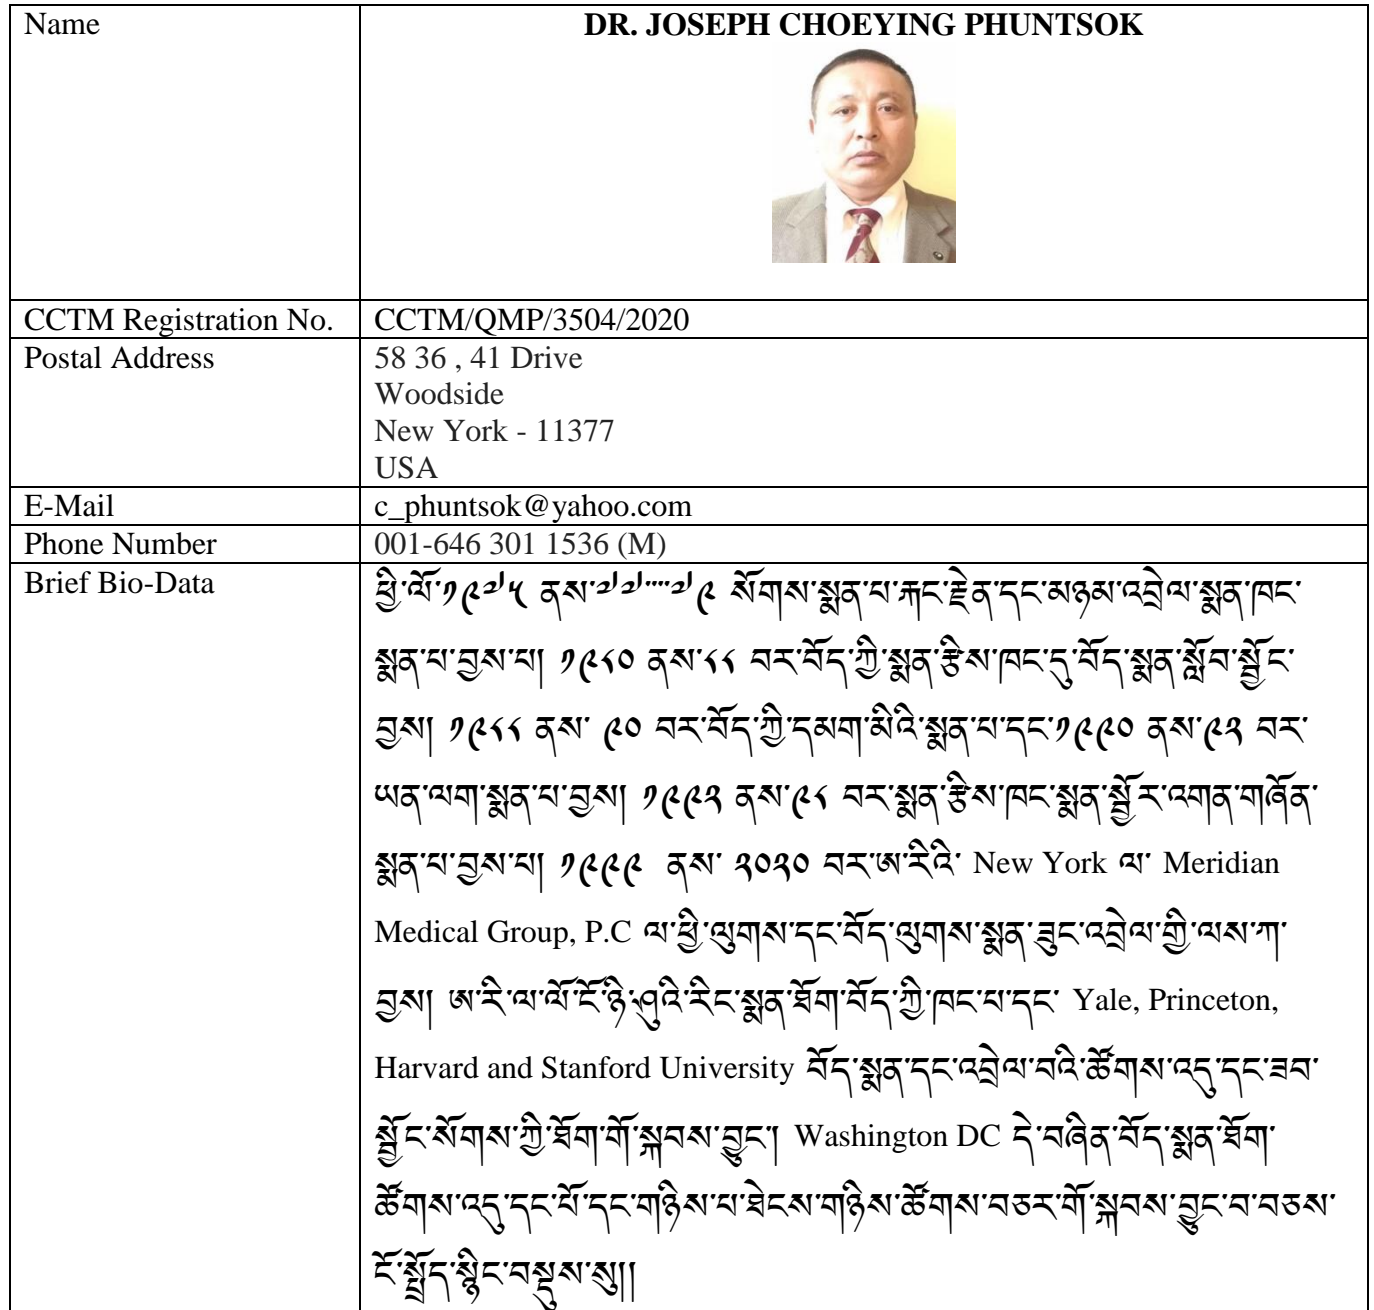 Name
DR. JOSEPH CHOEYING PHUNTSOK
CCTM Registration No.
CCTM/QMP/3504/2020
Postal Address
58 36 , 41 Drive
Woodside
New York - 11377
USA
E-Mail
c_phuntsok@yahoo.com
Phone Number
001-646 301 1536 (M)
Brief Bio-Data
ཕྱི་ལོ་༡༩༧༥ ནས་༧༧་་་་༧༩ སོགས་སྨན་པ་རྐང་རྗེན་དང་མཉམ་འབྲེལ་སྨན་ཁང་
སྨན་པ་བྱས་པ། ༡༩༨༠ ནས་༨༨ བར་བོད་ཀྱི་སྨན་རྩིས་ཁང་དུ་བོད་སྨན་སློབ་སྦྱོང་
བྱས། ༡༩༨༨ ནས་ ༩༠ བར་བོད་ཀྱི་དམག་མིའི་སྨན་པ་དང་༡༩༩༠ ནས་༩༢ བར་
ཡན་ལག་སྨན་པ་བྱས། ༡༩༩༢ ནས་༩༨ བར་སྨན་རྩིས་ཁང་སྨན་སྦྱོར་འགན་གཞོན་
སྨན་པ་བྱས་པ། ༡༩༩༩ ནས་ ༢༠༢༠ བར་ཨ་རིའི་ New York ལ་ Meridian
Medical Group, P.C ལ་ཕྱི་ལུགས་དང་བོད་ལུགས་སྨན་ཟུང་འབྲེལ་གྱི་ལས་ཀ་
བྱས། ཨ་རི་ལ་ལོ་ངོ་ཉི་ཤུའི་རིང་སྨན་ཐོག་བོད་ཀྱི་ཁང་པ་དང་ Yale, Princeton,
Harvard and Stanford University བོད་སྨན་དང་འབྲེལ་བའི་ཚོགས་འདུ་དང་ཟབ་
སྦྱོང་སོགས་ཀྱི་ཐོག་གོ་སྐབས་བྱུང་། Washington DC དེ་བཞིན་བོད་སྨན་ཐོག་
ཚོགས་འདུ་དང་པོ་དང་གཉིས་པ་ཐེངས་གཉིས་ཚོགས་བཅར་གོ་སྐབས་བྱུང་བ་བཅས་
ངོ་སྤྲོད་སྙིང་བསྡུས་སུ།།